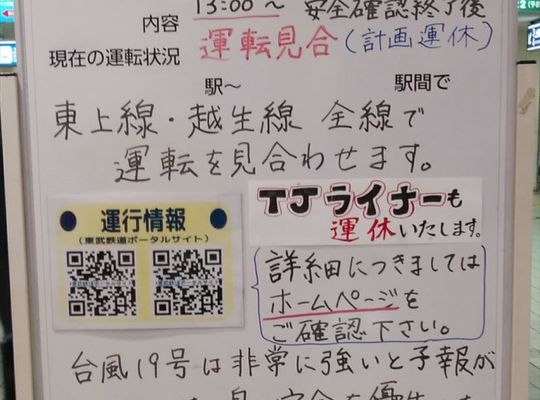 13:00～ 安全確認終了後
内容
現在の運転状況 運転見合(計画運休)
駅～ 駅間で
東上線・越生線 全線で
運転を見合わせます。
運行情報
(東武鉄道ポータルサイト)
TJライナーも
運休いたします。
詳細につきましては
ホームページを
ご確認下さい。
台風19号は非常に強いと予報が